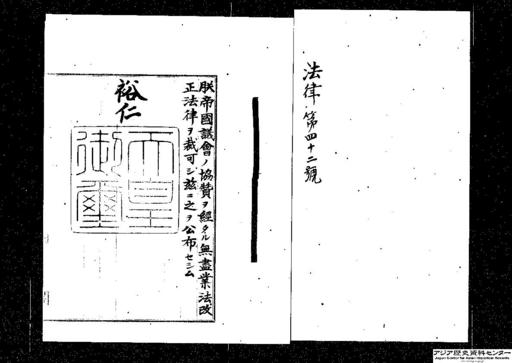 法律第四十二號
朕帝國議會ノ協贊ヲ經タル無盡業法改
正法律ヲ裁可シ茲ニ之ヲ公布セシム
裕仁
天皇
御璽
アジア歴史資料センター
Japan Center for Asian Historical Records